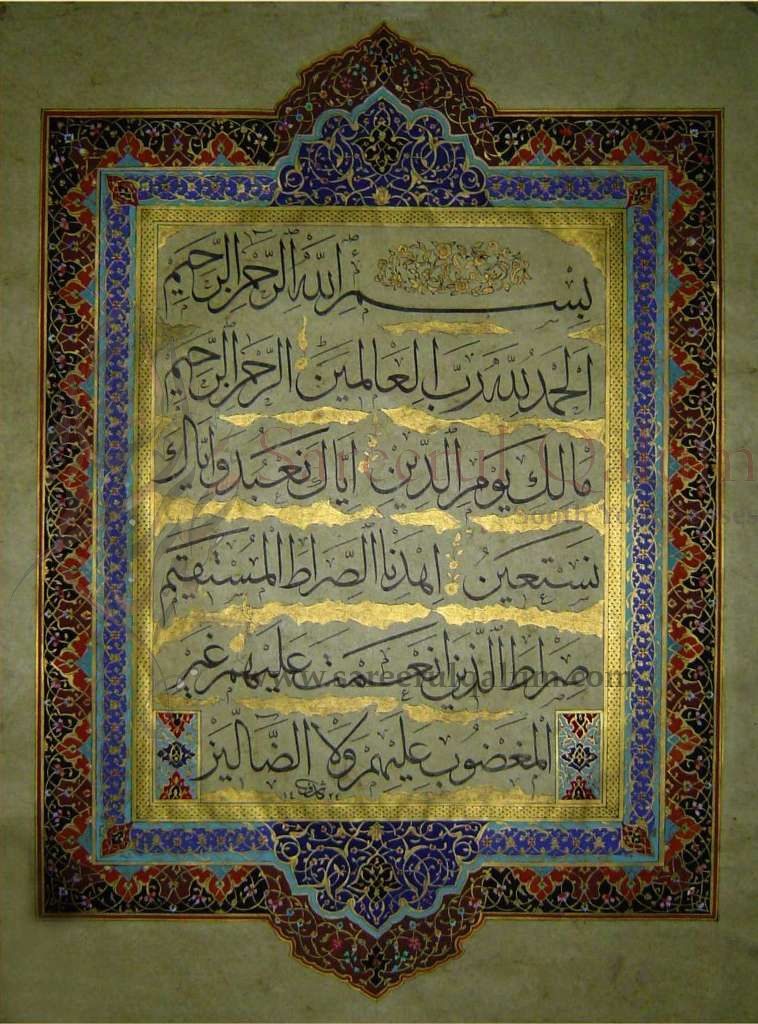 بسم الله الرحمن الرحيم
الحمد لله رب العالمين الرحمن الرحيم
مالك يوم الدين اياك نعبد واياك
نستعين اهدنا الصراط المستقيم
صراط الذين انعمت عليهم غير
المغضوب عليهم ولا الضالين
Sareerul Qalam
www.sareerulqalam.com